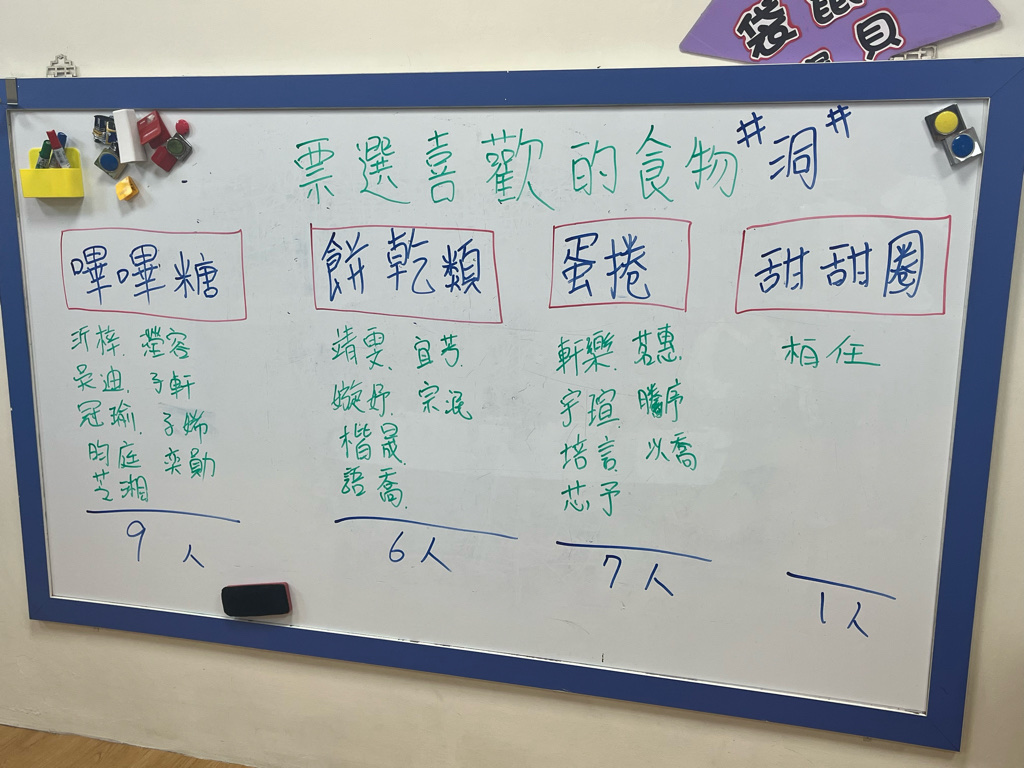 袋鼠
員
票選喜歡的食物 #洞#
嗶嗶糖
沂梓 瀅容
昊迪 子軒
冠瑜 子姊
昀庭 奕勛
芝湘
9人
餅乾類
靖雯 宜芳
嫙妤 宗泯
楷晟
語喬
6人
蛋捲
軒樂 茗惠
宇瑄 騰序
培言 以喬
芯予
7人
甜甜圈
柏任
1人